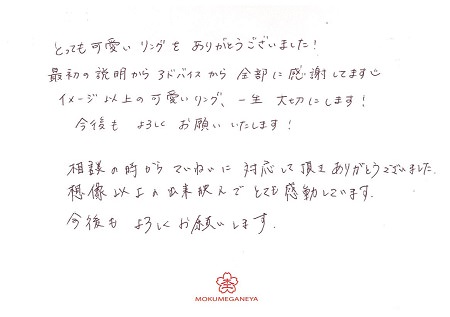 とっても可愛いリングをありがとうございました!
最初の説明からアドバイスから全部に感謝してます☺
イメージ以上の可愛いリング、一生大切にします!
今後もよろしくお願いいたします!
相談の時からていねいに対応して頂きありがとうございました。
想像以上の出来栄えでとても感動しています。
今後もよろしくお願いします。
MOKUMEGANEYA